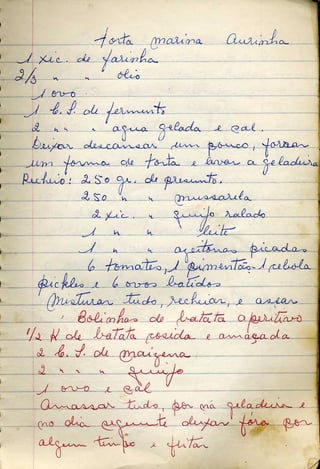 torta marina Aurinha
1 xic. de farinha
2/3 " " oleo
1 ovo
1 C. S. de fermento
2 " " " agua gelada e sal.
Deixar descansar um pouco, forrar
um forma de torta e levar a geladeira
Recheio: 250 gr. de presunto.
250 " " mussarela
2 xic. " queijo ralado
1 " " leite
1 " " azeitonas picadas
6 tomates, 1 pimentão, 1 cebola
pickles e 6 ovos batidos
Misturar tudo, rechear, e assar
Bolinhos de batata aperitivo
1/2 K de batata cosida e amaçada
2 C. S. de maizena
2 " " " queijo
1 ovo e sal
Amassar tudo, por na geladeira e
no dia seguinte deixar fora por
algum tempo e fritar